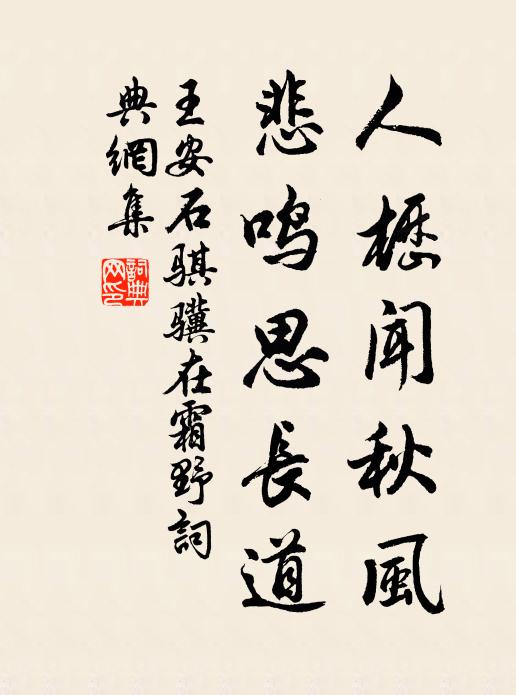 人櫪聞秋風
悲鸣思長道
王安石骐骥在霜野詞
典網集
詞典
网印